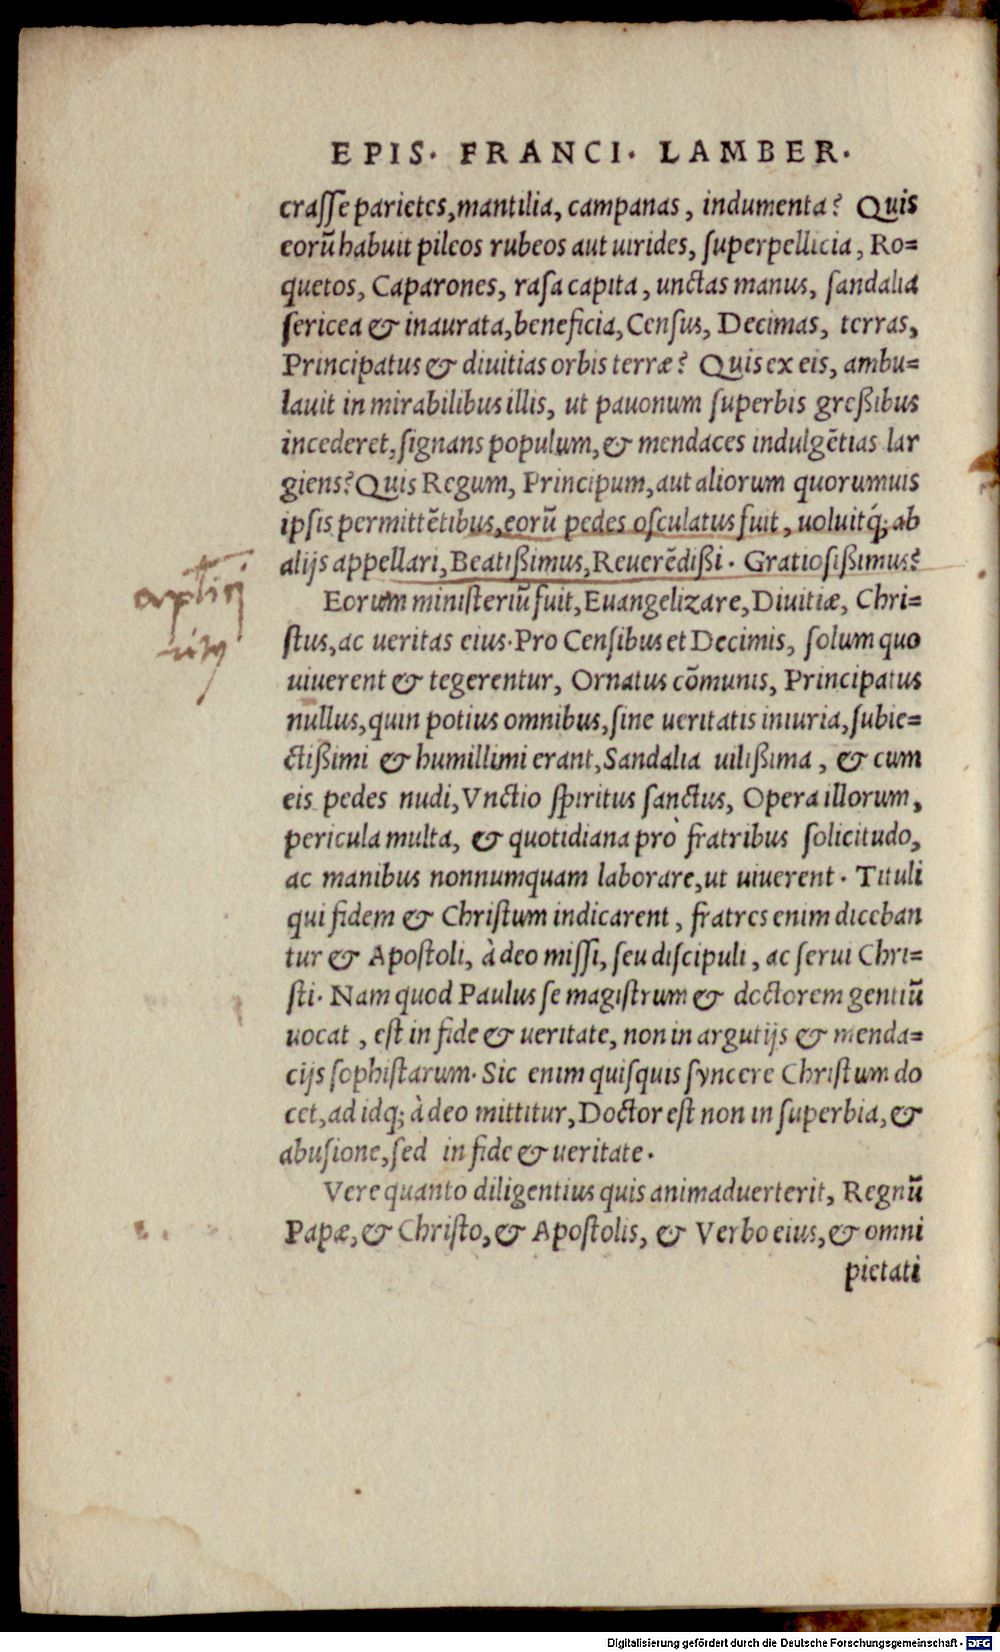 EPIS. FRANCI. LAMBER.
crasse parietes, mantilia, campanas, indumenta? Quis
eorū habuit pileos rubeos aut uirides, superpellicia, Ro=
quetos, Caparones, rasa capita, unctas manus, sandalia
sericea & inaurata, beneficia, Census, Decimas, terras,
Principatus & diuitias orbis terræ? Quis ex eis, ambu=
lauit in mirabilibus illis, ut pauonum superbis greßibus
incederet, signans populum, & mendaces indulgētias lar
giens? Quis Regum, Principum, aut aliorum quorumuis
ipsis permittētibus, eorū pedes osculatus fuit, uoluitq́; ab
alijs appellari, Beatißimus, Reuerēdißi. Gratiosißimus?
Eorum ministeriū fuit, Euangelizare, Diuitiæ, Chri=
stus, ac ueritas eius. Pro Censibus et Decimis, solum quo
uiuerent & tegerentur, Ornatus cōmunis, Principatus
nullus, quin potius omnibus, sine ueritatis iniuria, subie=
ctißimi & humillimi erant, Sandalia uilißima, & cum
eis pedes nudi, Vnctio spiritus sanctus, Opera illorum,
pericula multa, & quotidiana prò fratribus solicitudo,
ac manibus nonnumquam laborare, ut uiuerent. Tituli
qui fidem & Christum indicarent, fratres enim diceban
tur & Apostoli, à deo missi, seu discipuli, ac serui Chri=
sti. Nam quod Paulus se magistrum & doctorem gentiū
uocat, est in fide & ueritate, non in argutijs & menda=
cijs sophistarum. Sic enim quisquis syncere Christum do
cet, ad idq; à deo mittitur, Doctor est non in superbia, &
abusione, sed in fide & ueritate.
Vere quanto diligentius quis animaduerterit, Regnū
Papæ, & Christo, & Apostolis, & Verbo eius, & omni
pietati
Digitalisierung gefördert durch die Deutsche Forschungsgemeinschaft - DFG